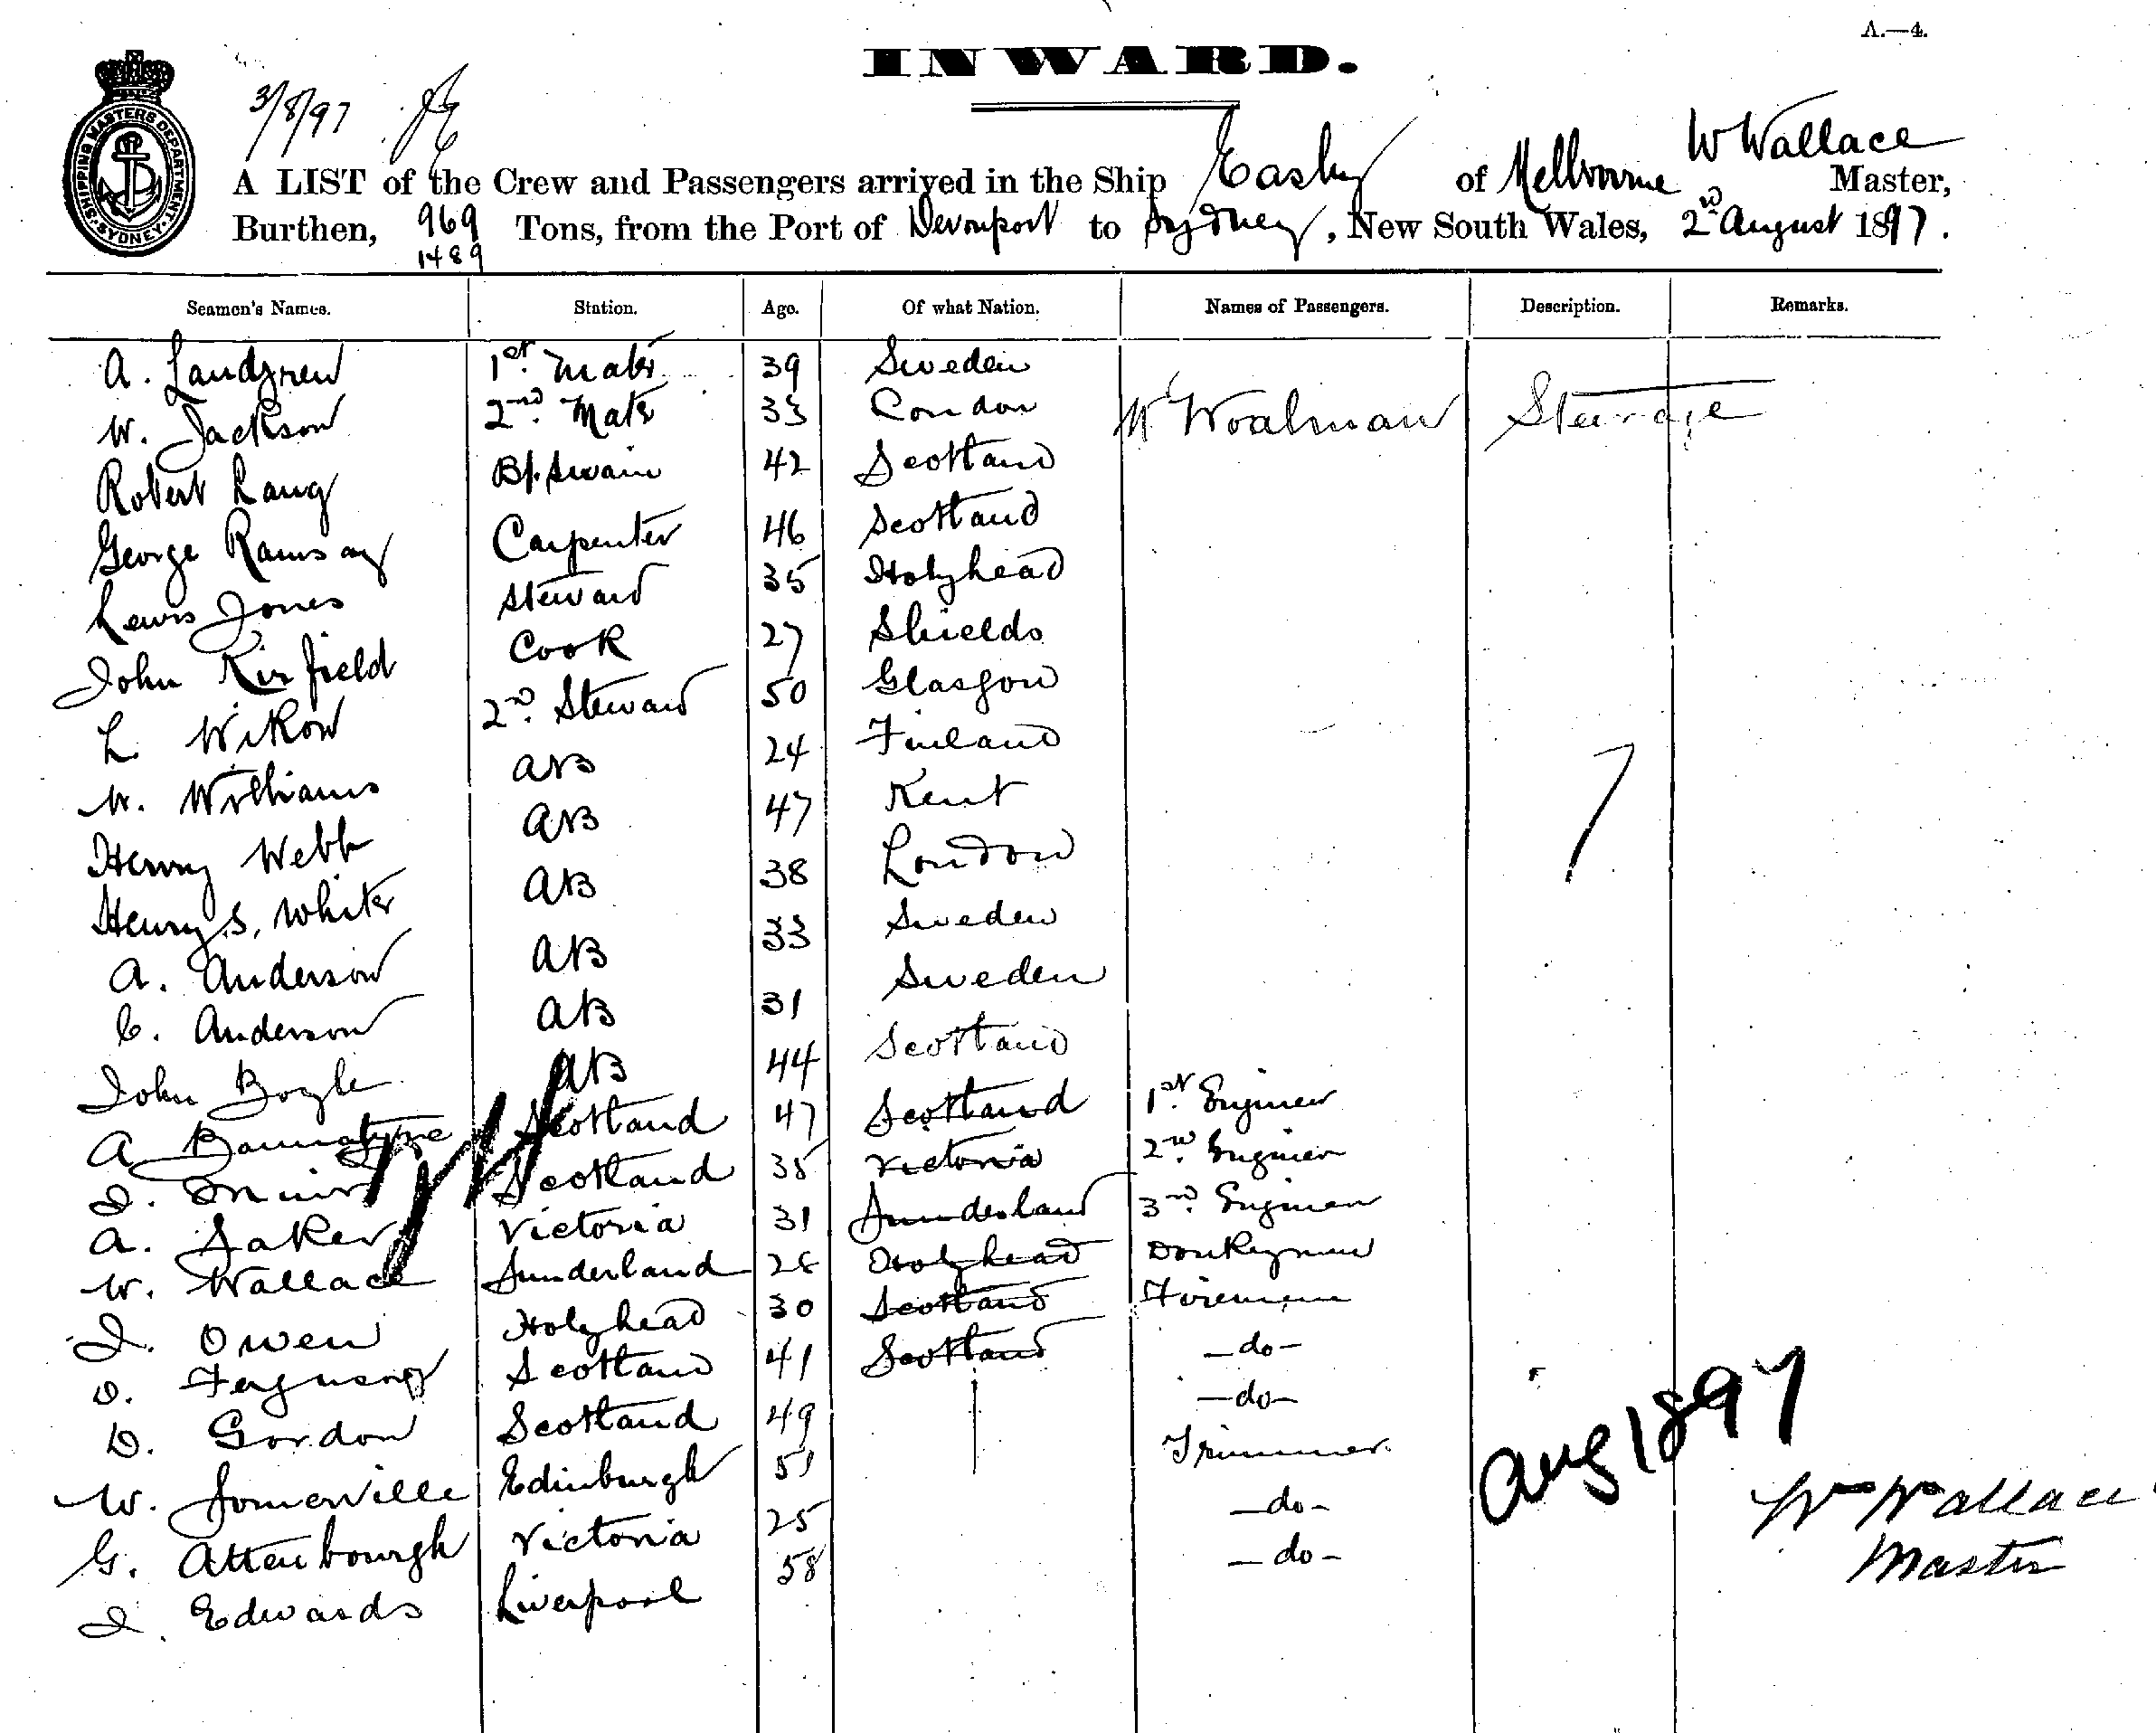 A.—4.
INWARD.
SHIPPING MASTERS DEPARTMENT SYDNEY
3/8/97
W Wallace
A LIST of the Crew and Passengers arrived in the Ship Easby of Melbourne Master,
Burthen, 969 Tons, from the Port of Devonport to Sydney, New South Wales, 2nd August 1897.
1489
Seamen's Names. Station. Age. Of what Nation. Names of Passengers. Description. Remarks.
A. Landgren 1st Mate 39 Sweden
W. Jackson 2nd Mate 33 London Mr Woalman Steerage
Robert Lang Bt.swain 42 Scotland
George Ramsay Carpenter 46 Scotland
Lewis Jones Steward 35 Holyhead
John Kirfield Cook 27 Shields
L. Wikow 2nd Steward 50 Glasgow
W. Williams AB 24 Finland
Henry Webb AB 47 Kent
Henry S. White AB 38 London
A. Anderson AB 33 Sweden
C. Anderson AB 31 Sweden
John Boyle AB 44 Scotland
A Bannatyne Scotland 47 Scotland 1st Engineer
J. Muir Scotland 35 Victoria 2nd Engineer
A. Saker Victoria 31 Sunderland 3rd Engineer
W. Wallace Sunderland 28 Holyhead Donkeyman
J. Owen Holyhead 30 Scotland Firemen
D. Ferguson Scotland 41 Scotland —do—
D. Gordon Scotland 49 —do—
W. Somerville Edinburgh 51 Trimmer
G. Attenbourgh Victoria 25 —do—
J. Edwards Liverpool 58 —do—
Aug 1897
Wm Wallace
Master